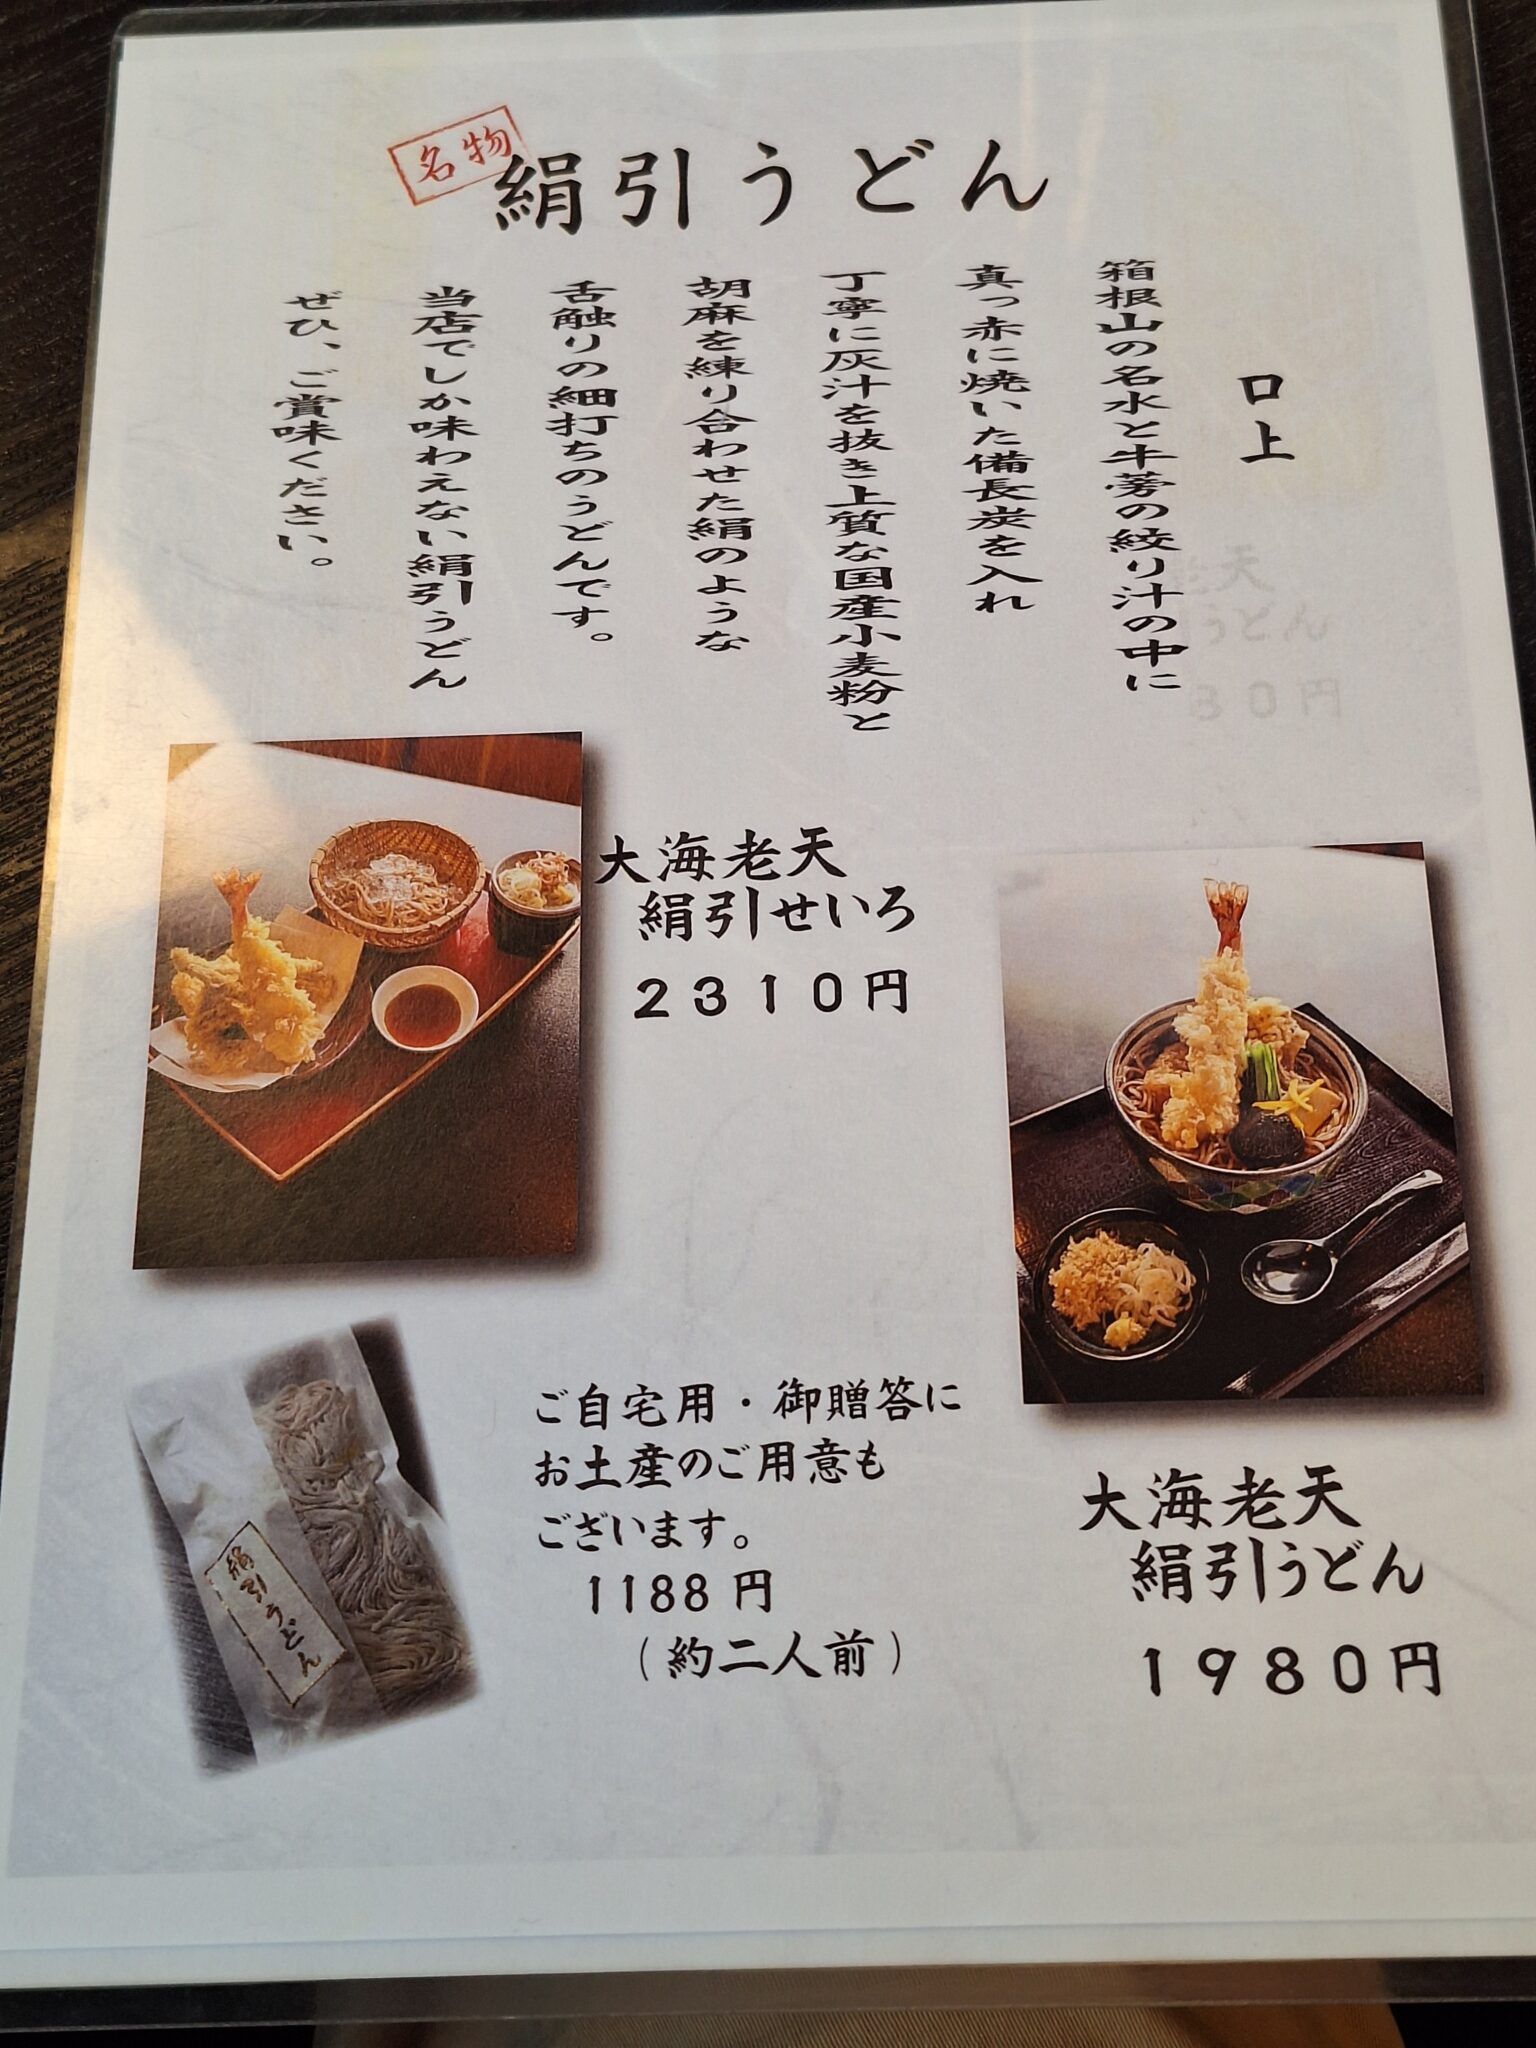 名物
絹引うどん
口上
箱根山の名水と牛蒡の絞り汁の中に
真っ赤に焼いた備長炭を入れ
丁寧に灰汁を抜き上質な国産小麦粉と
胡麻を練り合わせた絹のような
舌触りの細打ちのうどんです。
当店でしか味わえない絹引うどん
ぜひ、ご賞味ください。
大海老天
絹引せいろ
2310円
大海老天
絹引うどん
1980円
ご自宅用・御贈答に
お土産のご用意も
ございます。
1188円
(約二人前)
絹引うどん